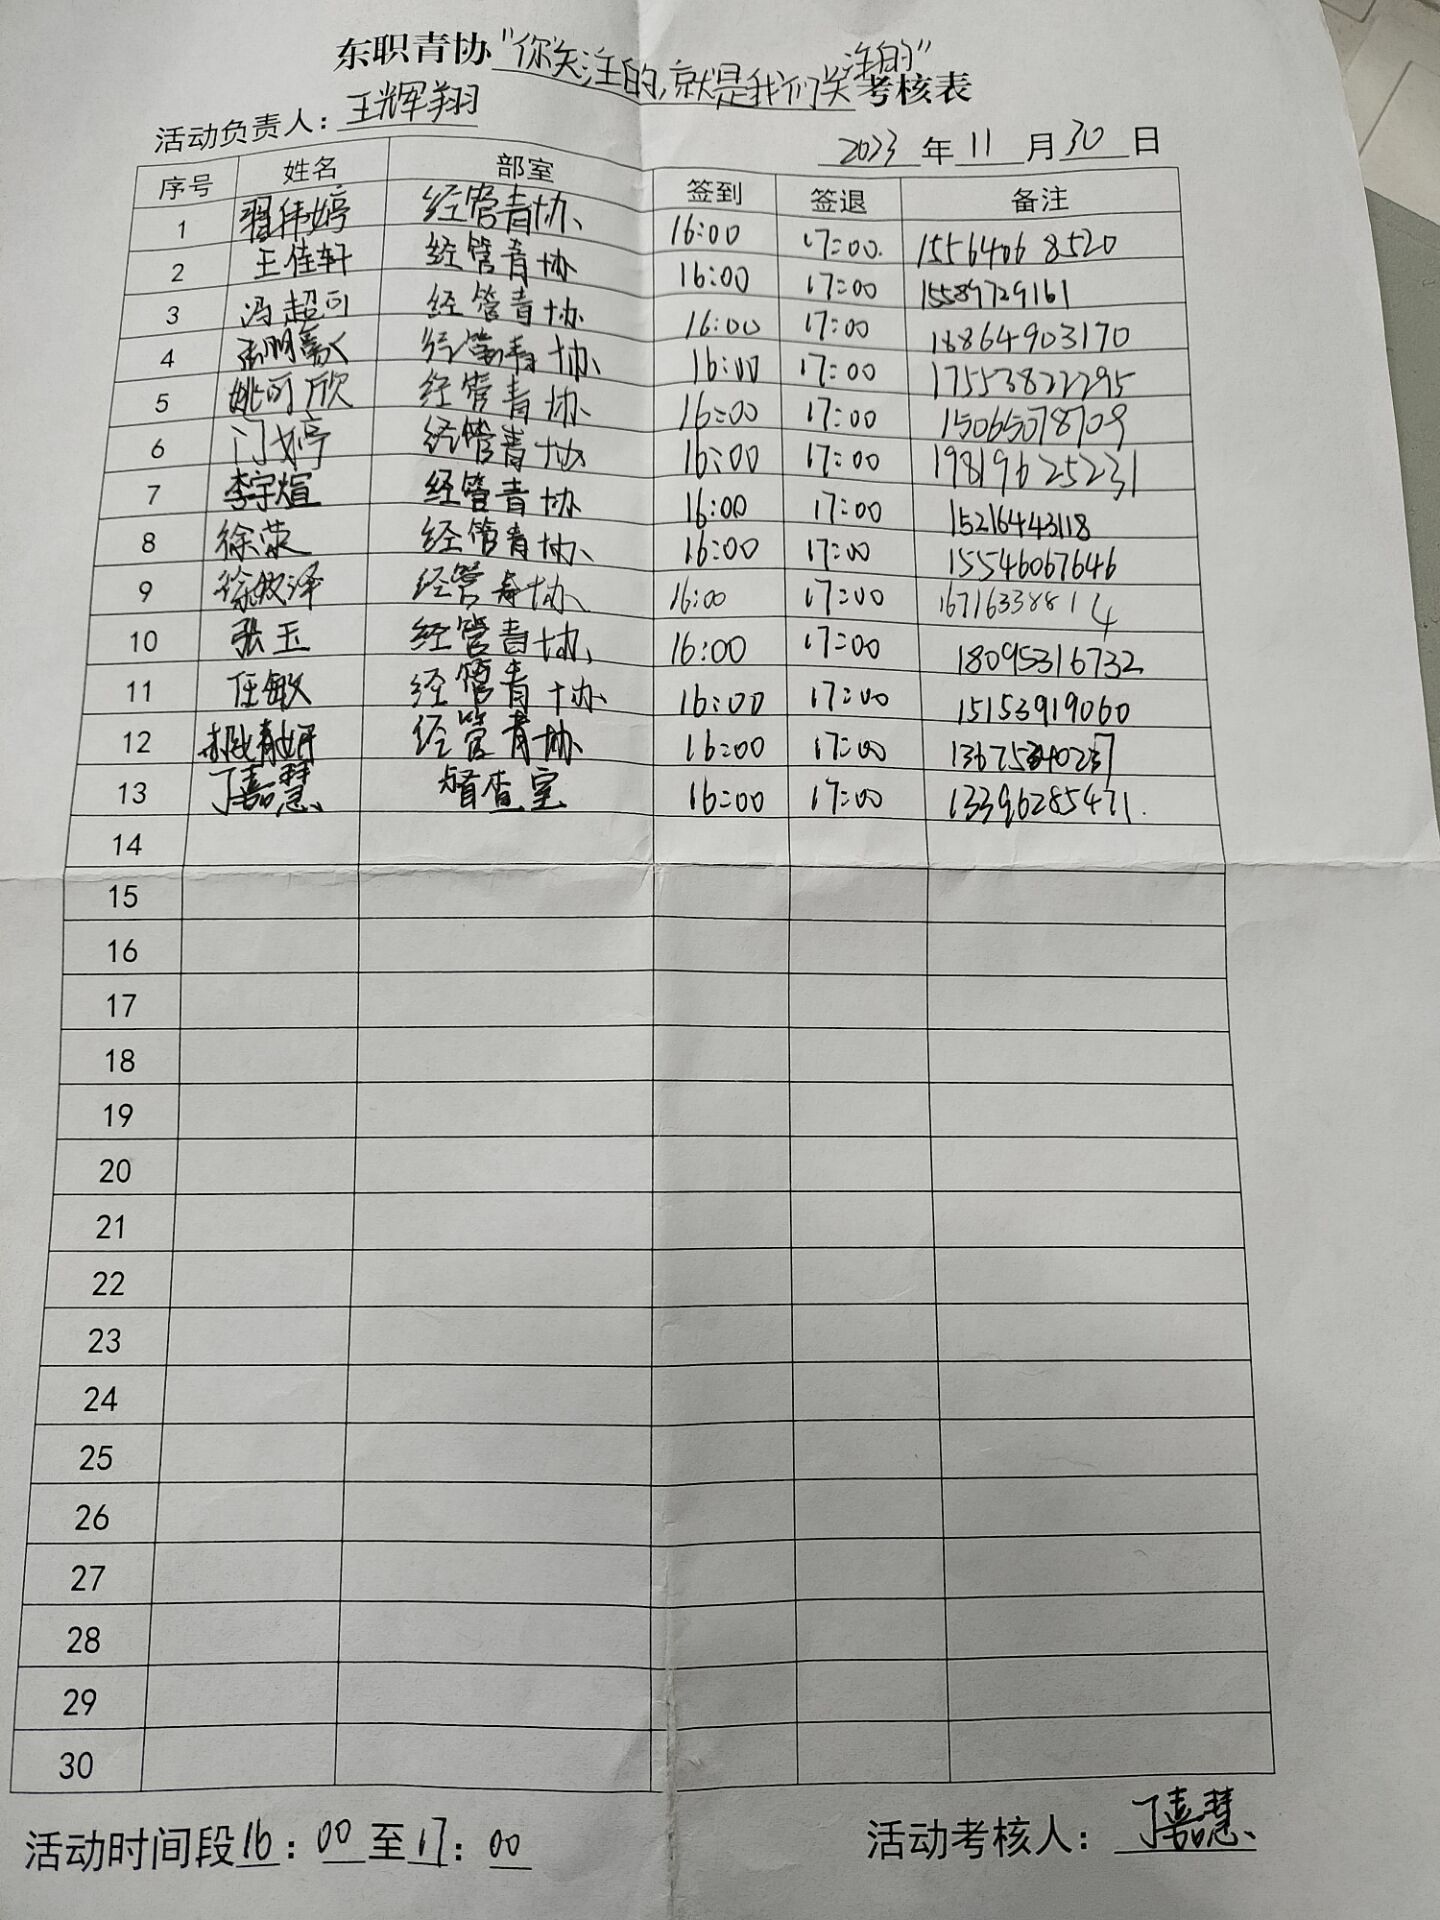 东职青协"你关注的,就是我们关注的"考核表
活动负责人:王辉翔
2023年11月30日
序号 姓名 部室 签到 签退 备注
1 翟伟婷 经管青协 16:00 17:00 15564068520
2 王佳轩 经管青协 16:00 17:00 15589729161
3 冯超可 经管青协 16:00 17:00 18864903170
4 经管青协 16:00 17:00 17553822295
5 姚可欣 经管青协 16:00 17:00 15065078709
6 门婷 经管青协 16:00 17:00 19819625231
7 李宇煊 经管青协 16:00 17:00 15216443118
8 徐荣 经管青协 16:00 17:00 15546067646
9 经管青协 16:00 17:00 16716338814
10 张玉 经管青协 16:00 17:00 18095316732
11 任敏 经管青协 16:00 17:00 15153919060
12 经管青协 16:00 17:00
13 丁嘉慧 督查室 16:00 17:00 13396285471.
14
15
16
17
18
19
20
21
22
23
24
25
26
27
28
29
30
活动时间段16:00至17:00 活动考核人:丁嘉慧